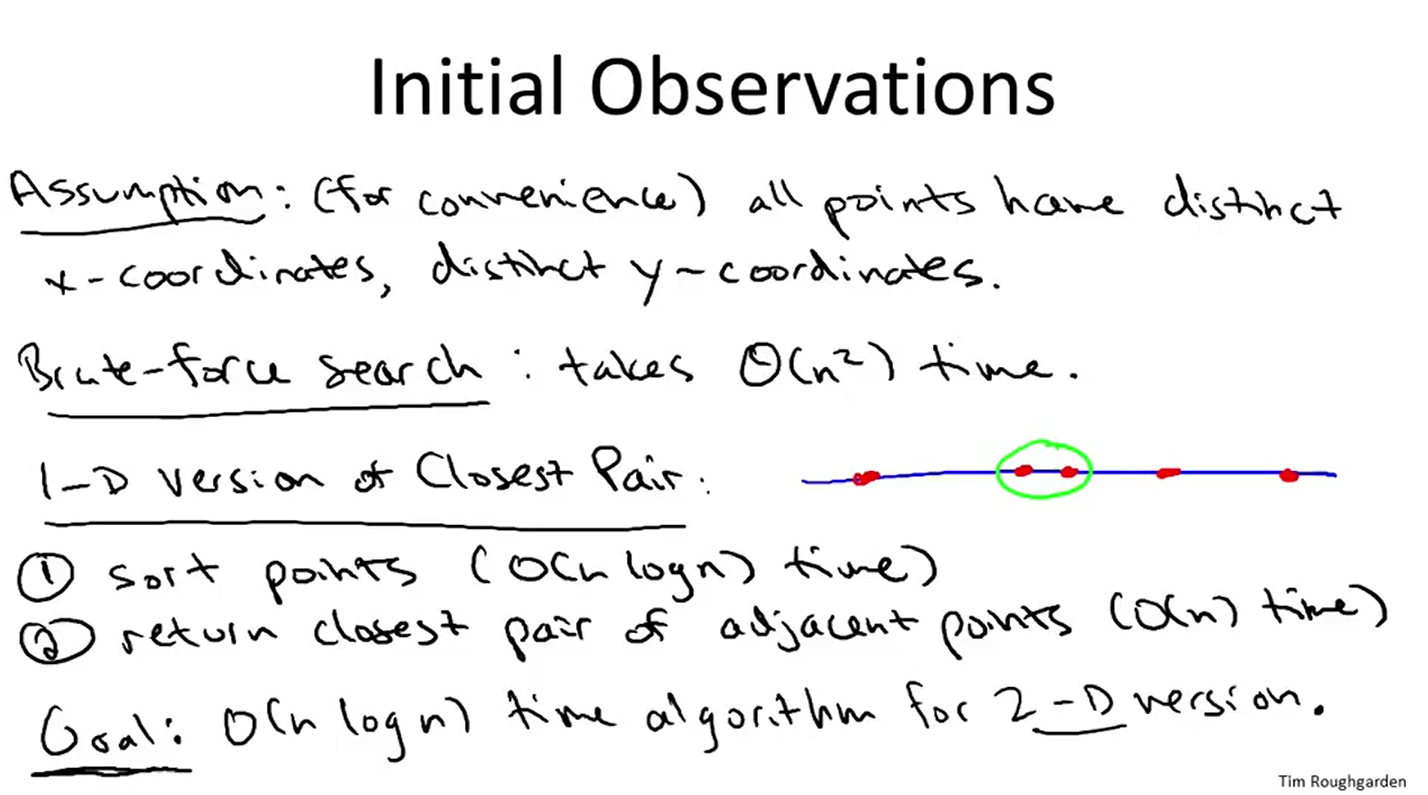 Initial Observations
Assumption: (for convenience) all points have distinct
x-coordinates, distinct y-coordinates.
Brute-force search: takes Θ(n²) time.
1-D version of Closest Pair:
① sort points (O(n log n) time)
② return closest pair of adjacent points (O(n) time)
Goal: O(n log n) time algorithm for 2-D version.
Tim Roughgarden